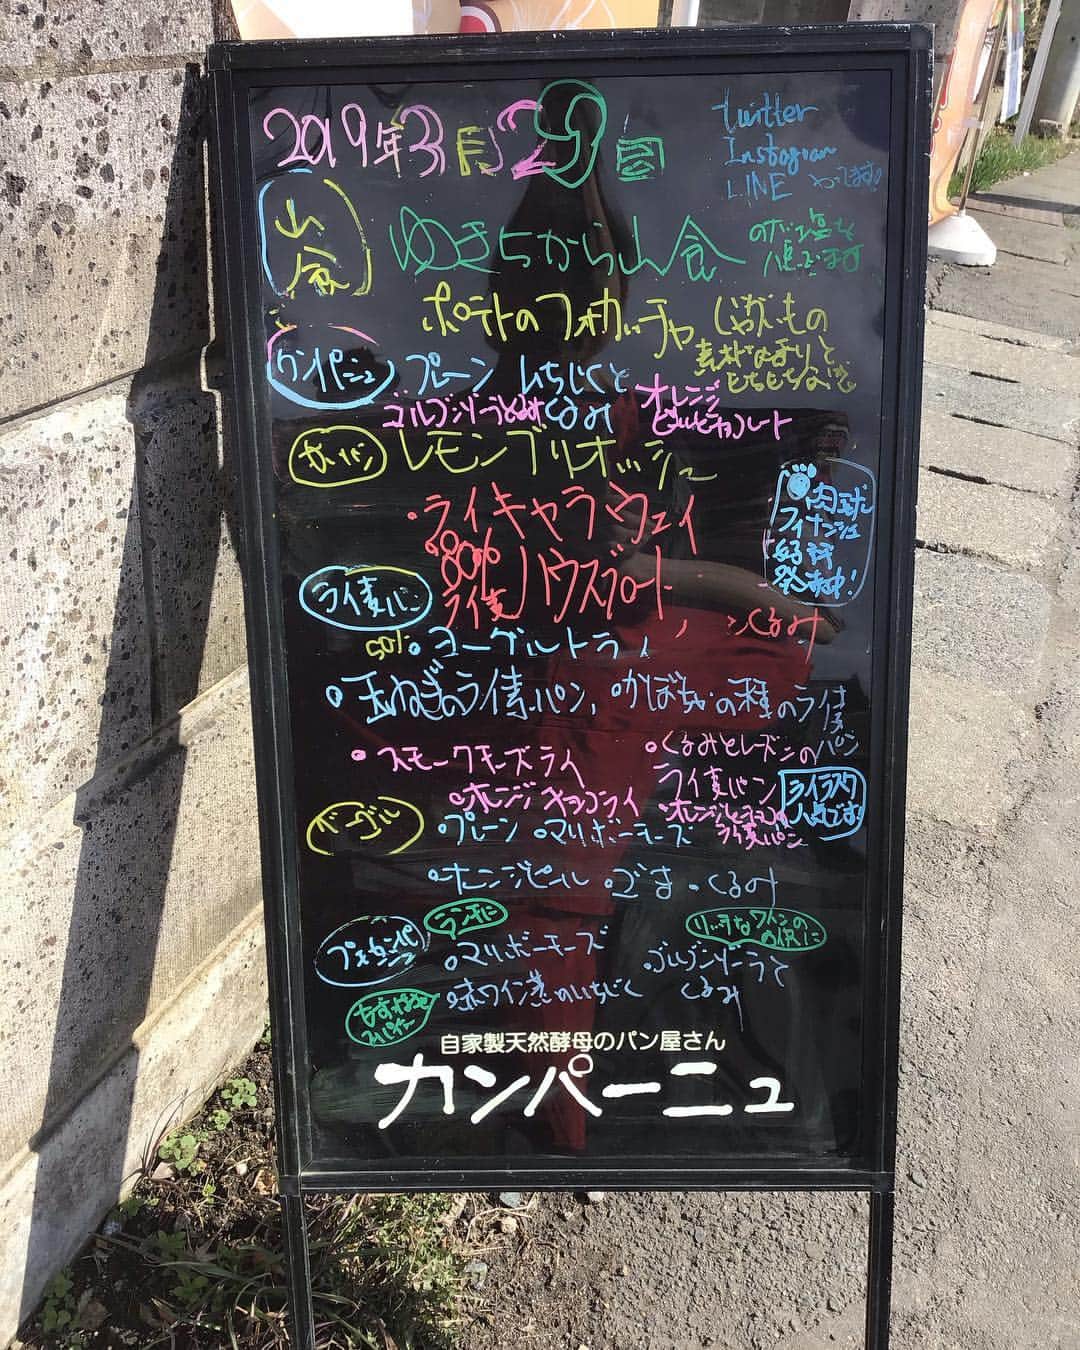 2019年3月29日
twitter
Instagram
LINE やってます!
山食
ゆきちから山食
ポテトのフォカッチャ
じゃがいもの
素朴な香りと
もちもちな
カンパーニュ
プレーン いちじくと
くるみ
ゴルゴンゾーラとくるみ
オレンジ
ピールとチョコレート
甘いパン
レモンブリオッシュ
肉球
フィナンシェ
好評
発売中!
ライ麦パン
・ライキャラウェイ
・80%
ライ麦
ハウスブロート, 〃くるみ
50%・ヨーグルトライ
・玉ねぎのライ麦パン, ・かぼちゃの種のライ麦パン
・スモークチーズライ
・くるみとレーズンの
ライ麦パン
・オレンジチョコライ
・オレンジとチョコの
ライ麦パン
ライラスク
人気です!
ベーグル
・プレーン ・マリボーチーズ
・オレンジピール ・ごま ・くるみ
プチカンパーニュ
ランチに
・マリボーチーズ
リッチなワインの
お供に
・ゴルゴンゾーラと
くるみ
・赤ワイン煮のいちじく
自家製天然酵母のパン屋さん
カンパーニュ